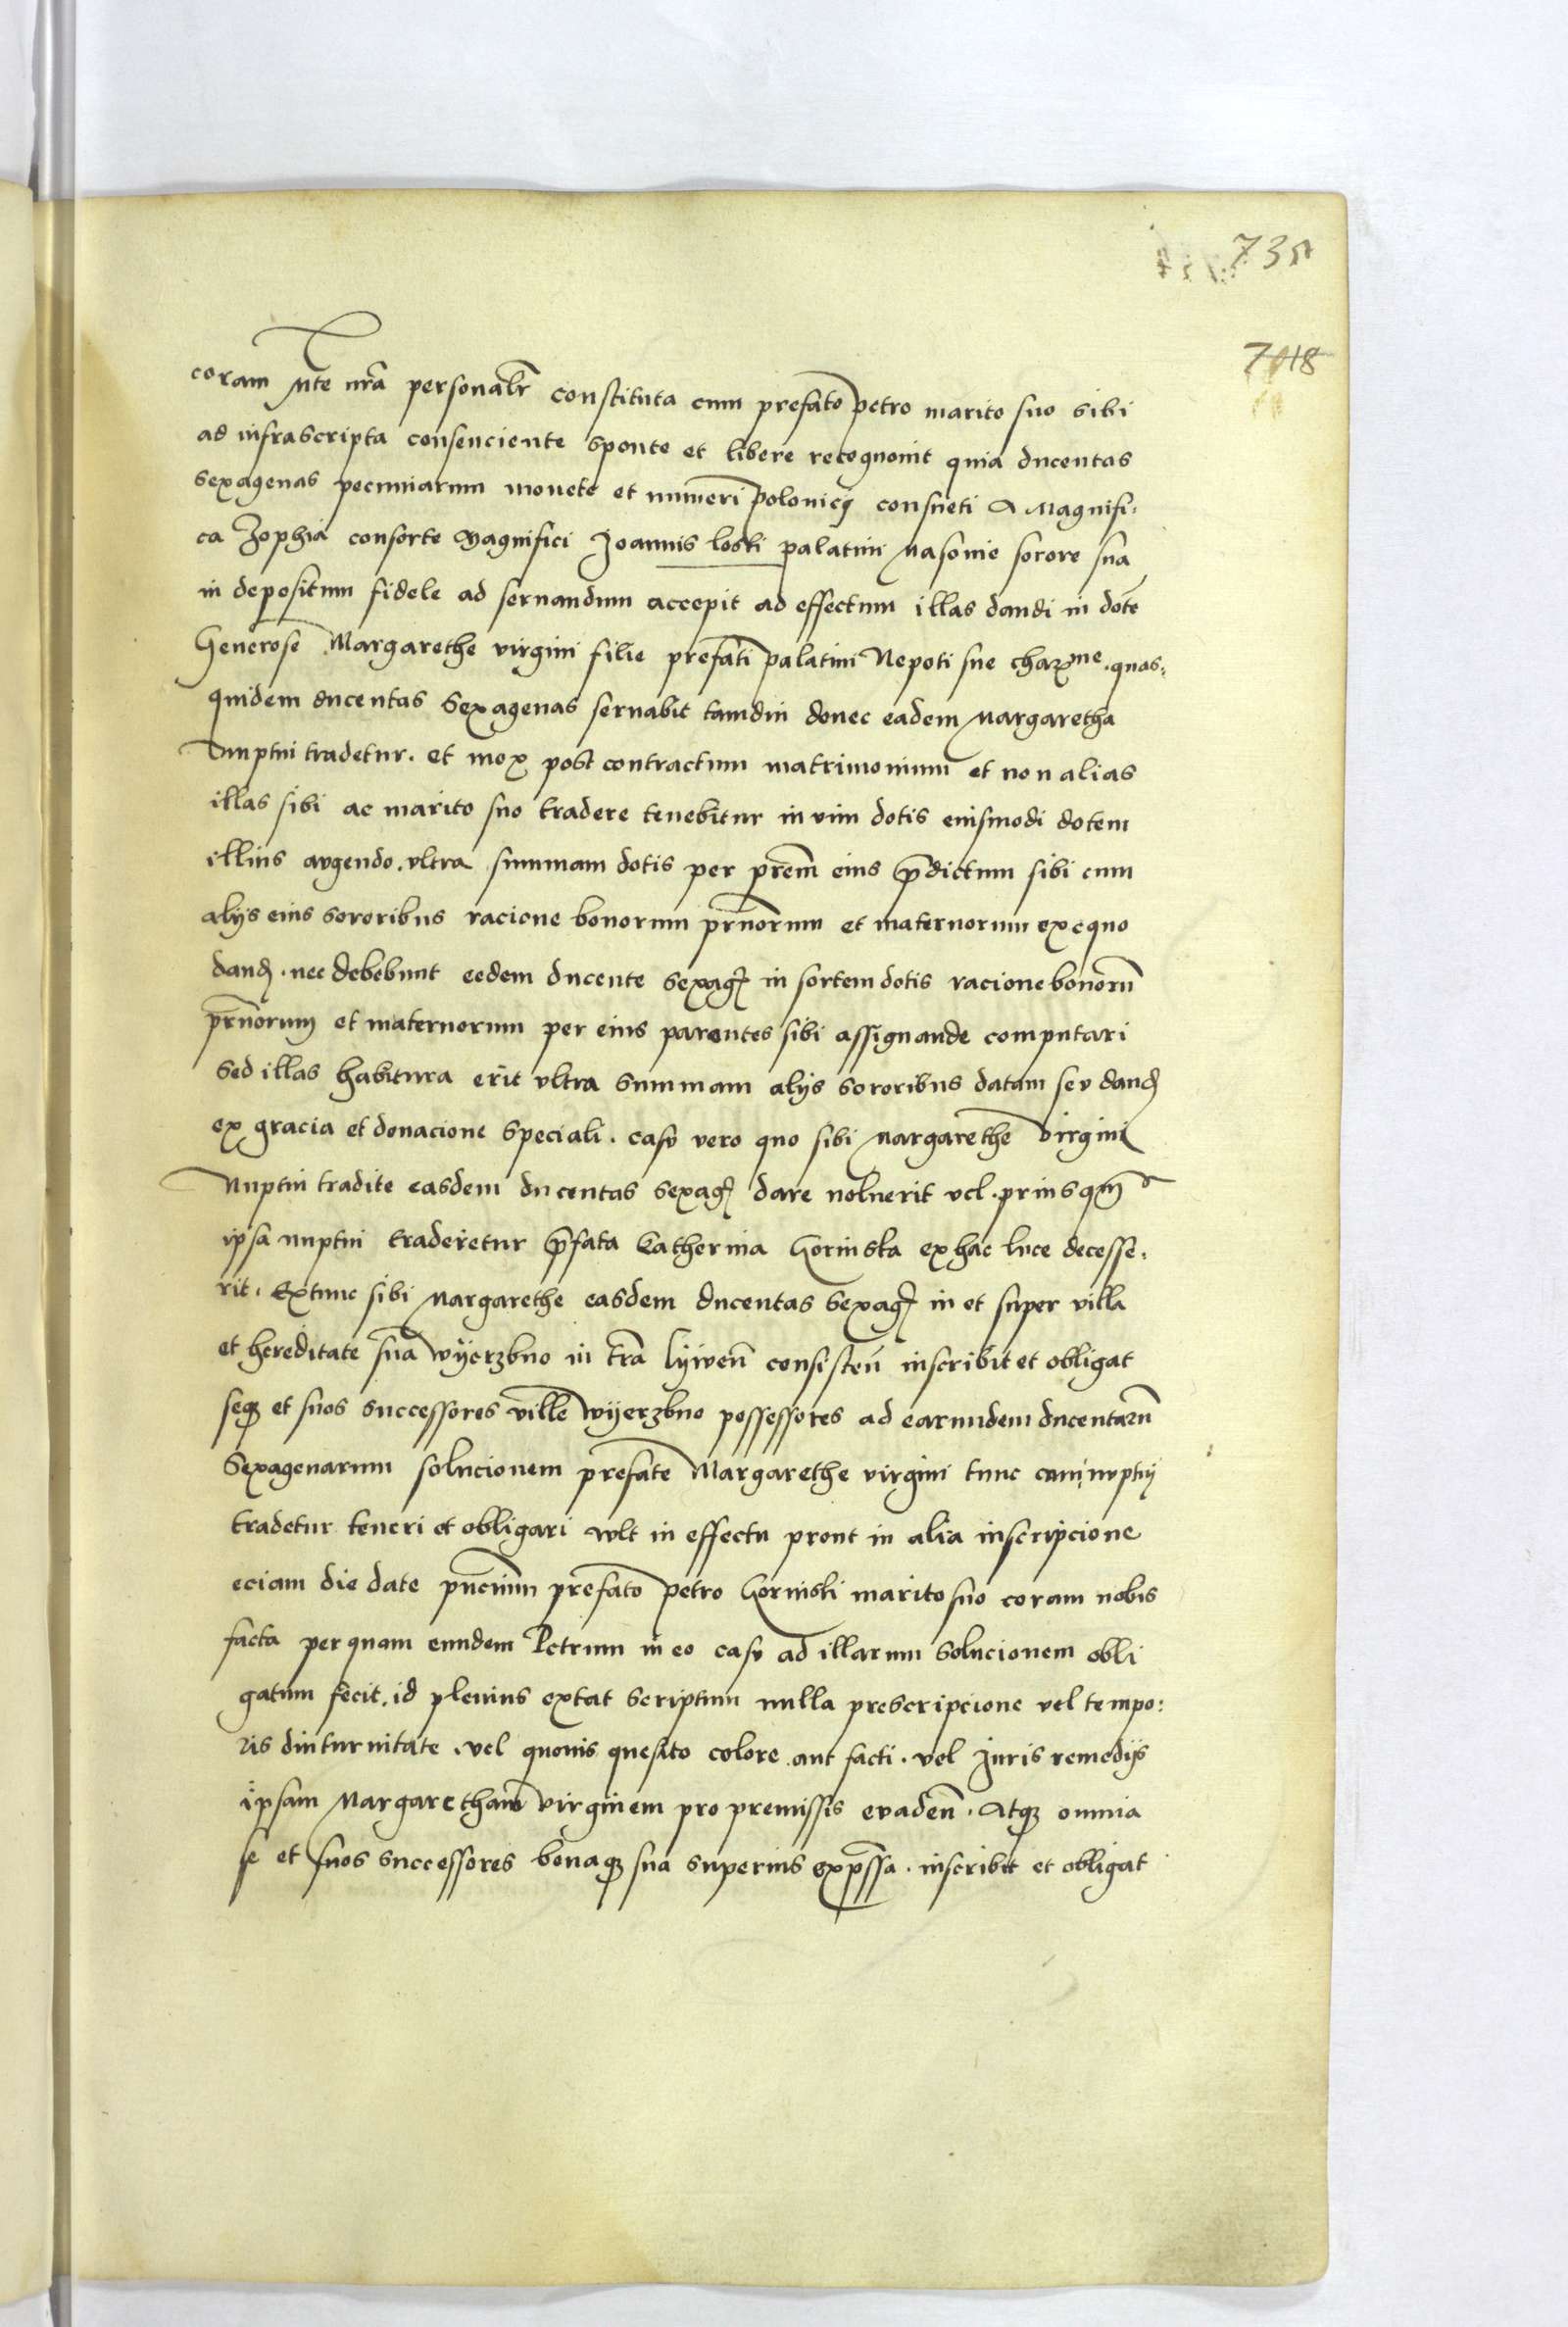 735
7018
coram Mte nrã personalr̃ constituta cum prefato petro marito suo sibi
ad infrascripta consenciente sponte et libere recognovit quia ducentas
sexagenas pecuniarum monete et numeri polonicj consueti A Magnifi:
ca Zophia consorte Magnifici Joannis loski palatini Masovie sorore sua
in depositum fidele ad servandum accepit ad effectum illas dandi in dotẽ
Generose Margarethe virgini filie prefati palatini Nepoti sue charme. quas:
quidem ducentas Sexagenas servabit tamdiu donec eadem Margaretha
nuptui tradetur. et mox post contractum matrimonium et non alias
illas sibi ac marito suo tradere tenebitur in vim dotis eiusmodi dotem
illius augendo. vltra summam dotis per prẽm eius p̃dictum sibi cum
alijs eius sororibus racione bonorum pr̃norum et maternorum exequo
dand. nec debebunt eedem ducente sexag in sortem dotis racione bonorũ
pr̃norum et maternorum per eius parentes sibi assignande computari
Sed illas habitura erit vltra summam alijs sororibus datam seu dand
ex gracia et donacione speciali. casu vero quo sibi Margarethe virgini
Nuptui tradite easdem ducentas sexag dare noluerit vel. prius qm̃
ipsa nuptui traderetur p̃fata Catherina Gorinska ex hac luce decesse:
rit. Extunc sibi Margarethe easdem ducentas Sexag in et super villa
et hereditate sua wyerzbno in trã lywen̄ consisten̄ inscribit et obligat
seq et suos successores ville wyerzbno possessores ad earundem ducentarũ
Sexagenarum solucionem prefate Margarethe virgini tunc cum nuptuj
tradetur teneri et obligari vult in effectu prout in alia inscripcione
eciam die date pñcium prefato petro Gorinski marito suo coram nobis
facta per quam eundem Petrum in eo casu ad illarum solucionem obli
gatum fecit. id plenius extat scriptum nulla prescripcione vel tempo:
ris diuturnitate. vel quovis quesito colore aut facti. vel Juris remedijs
ipsam Margaretham virginem pro premissis evaden̄. Atq omnia
se et suos successores bonaq sua superius exp̃ssa. inscribit et obligat